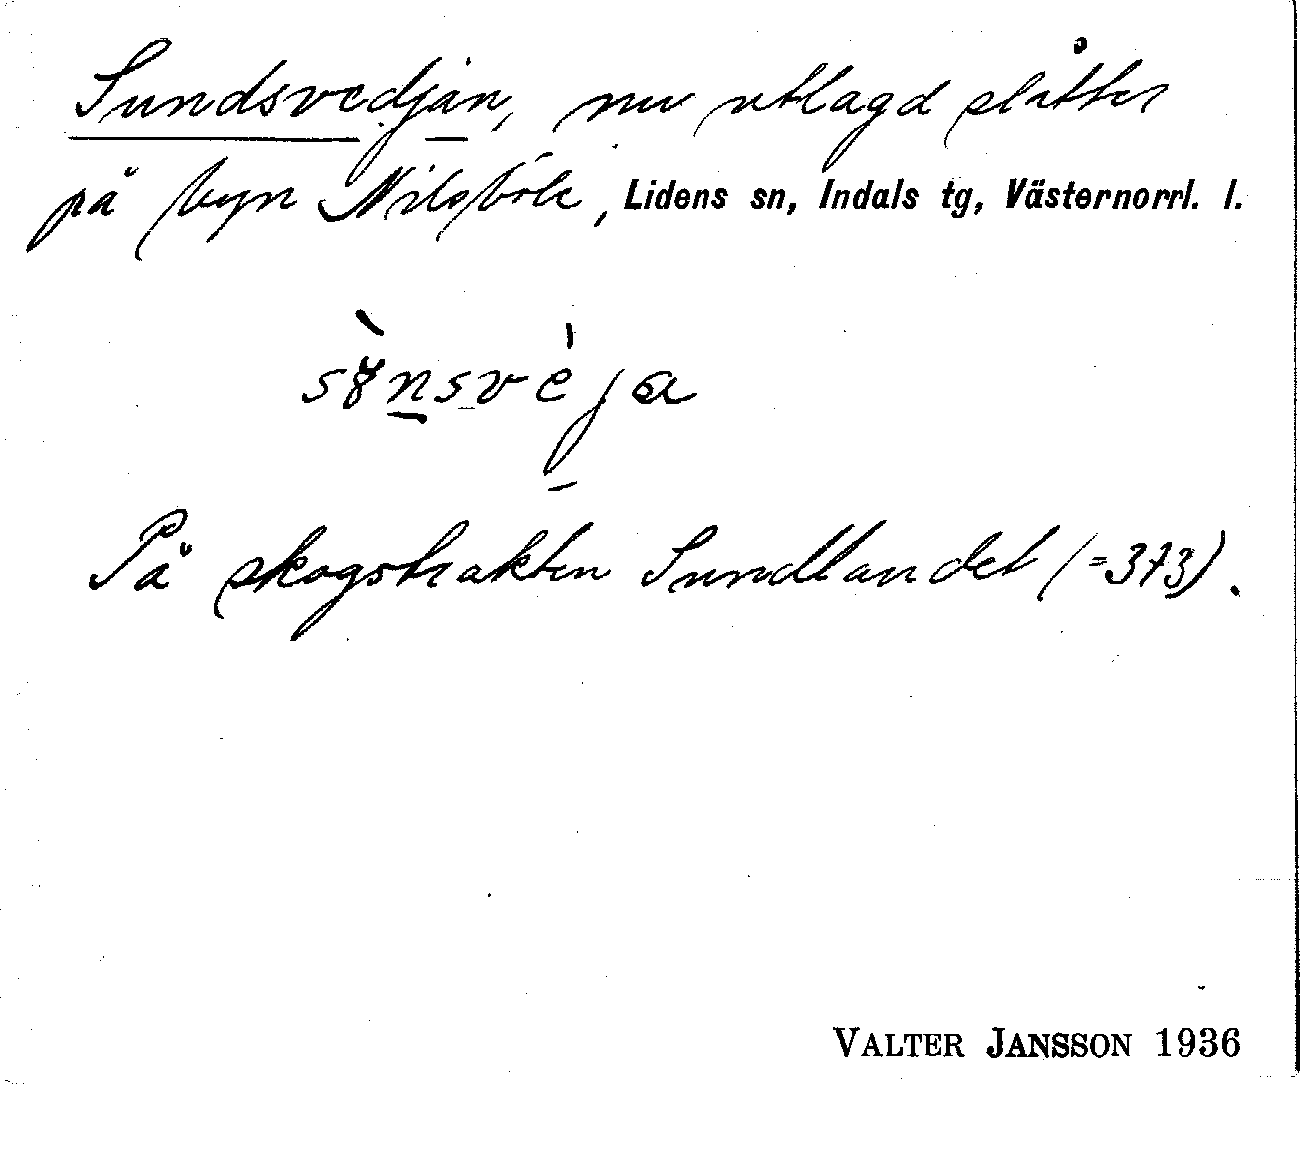 Sundsvedjan, nu utlagd slåtter
på byn Nilsböle, Lidens sn, Indals tg, Västernorrl. l.
På skogstrakten Sundlandet (=373).
VALTER JANSSON 1936